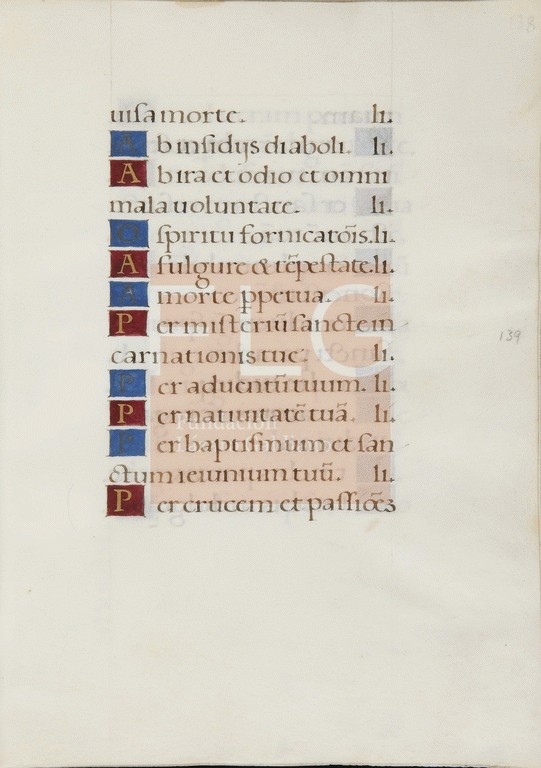 138
uisa morte. li.
Ab insidijs diaboli. li.
Ab ira et odio et omni
mala uoluntate. li.
A spiritu fornicatōis. li.
A fulgure & tēpestate. li.
A morte ꝑpetua. li.
Per misteriū sanctę in
carnationis tuę. li.
Per aduentū tuum. li.
139
Per natiuitatē tuā. li.
FLG
Fundación
Per baptismum et san
ctum ieiunium tuū. li.
Per crucem et passiōēꝫ